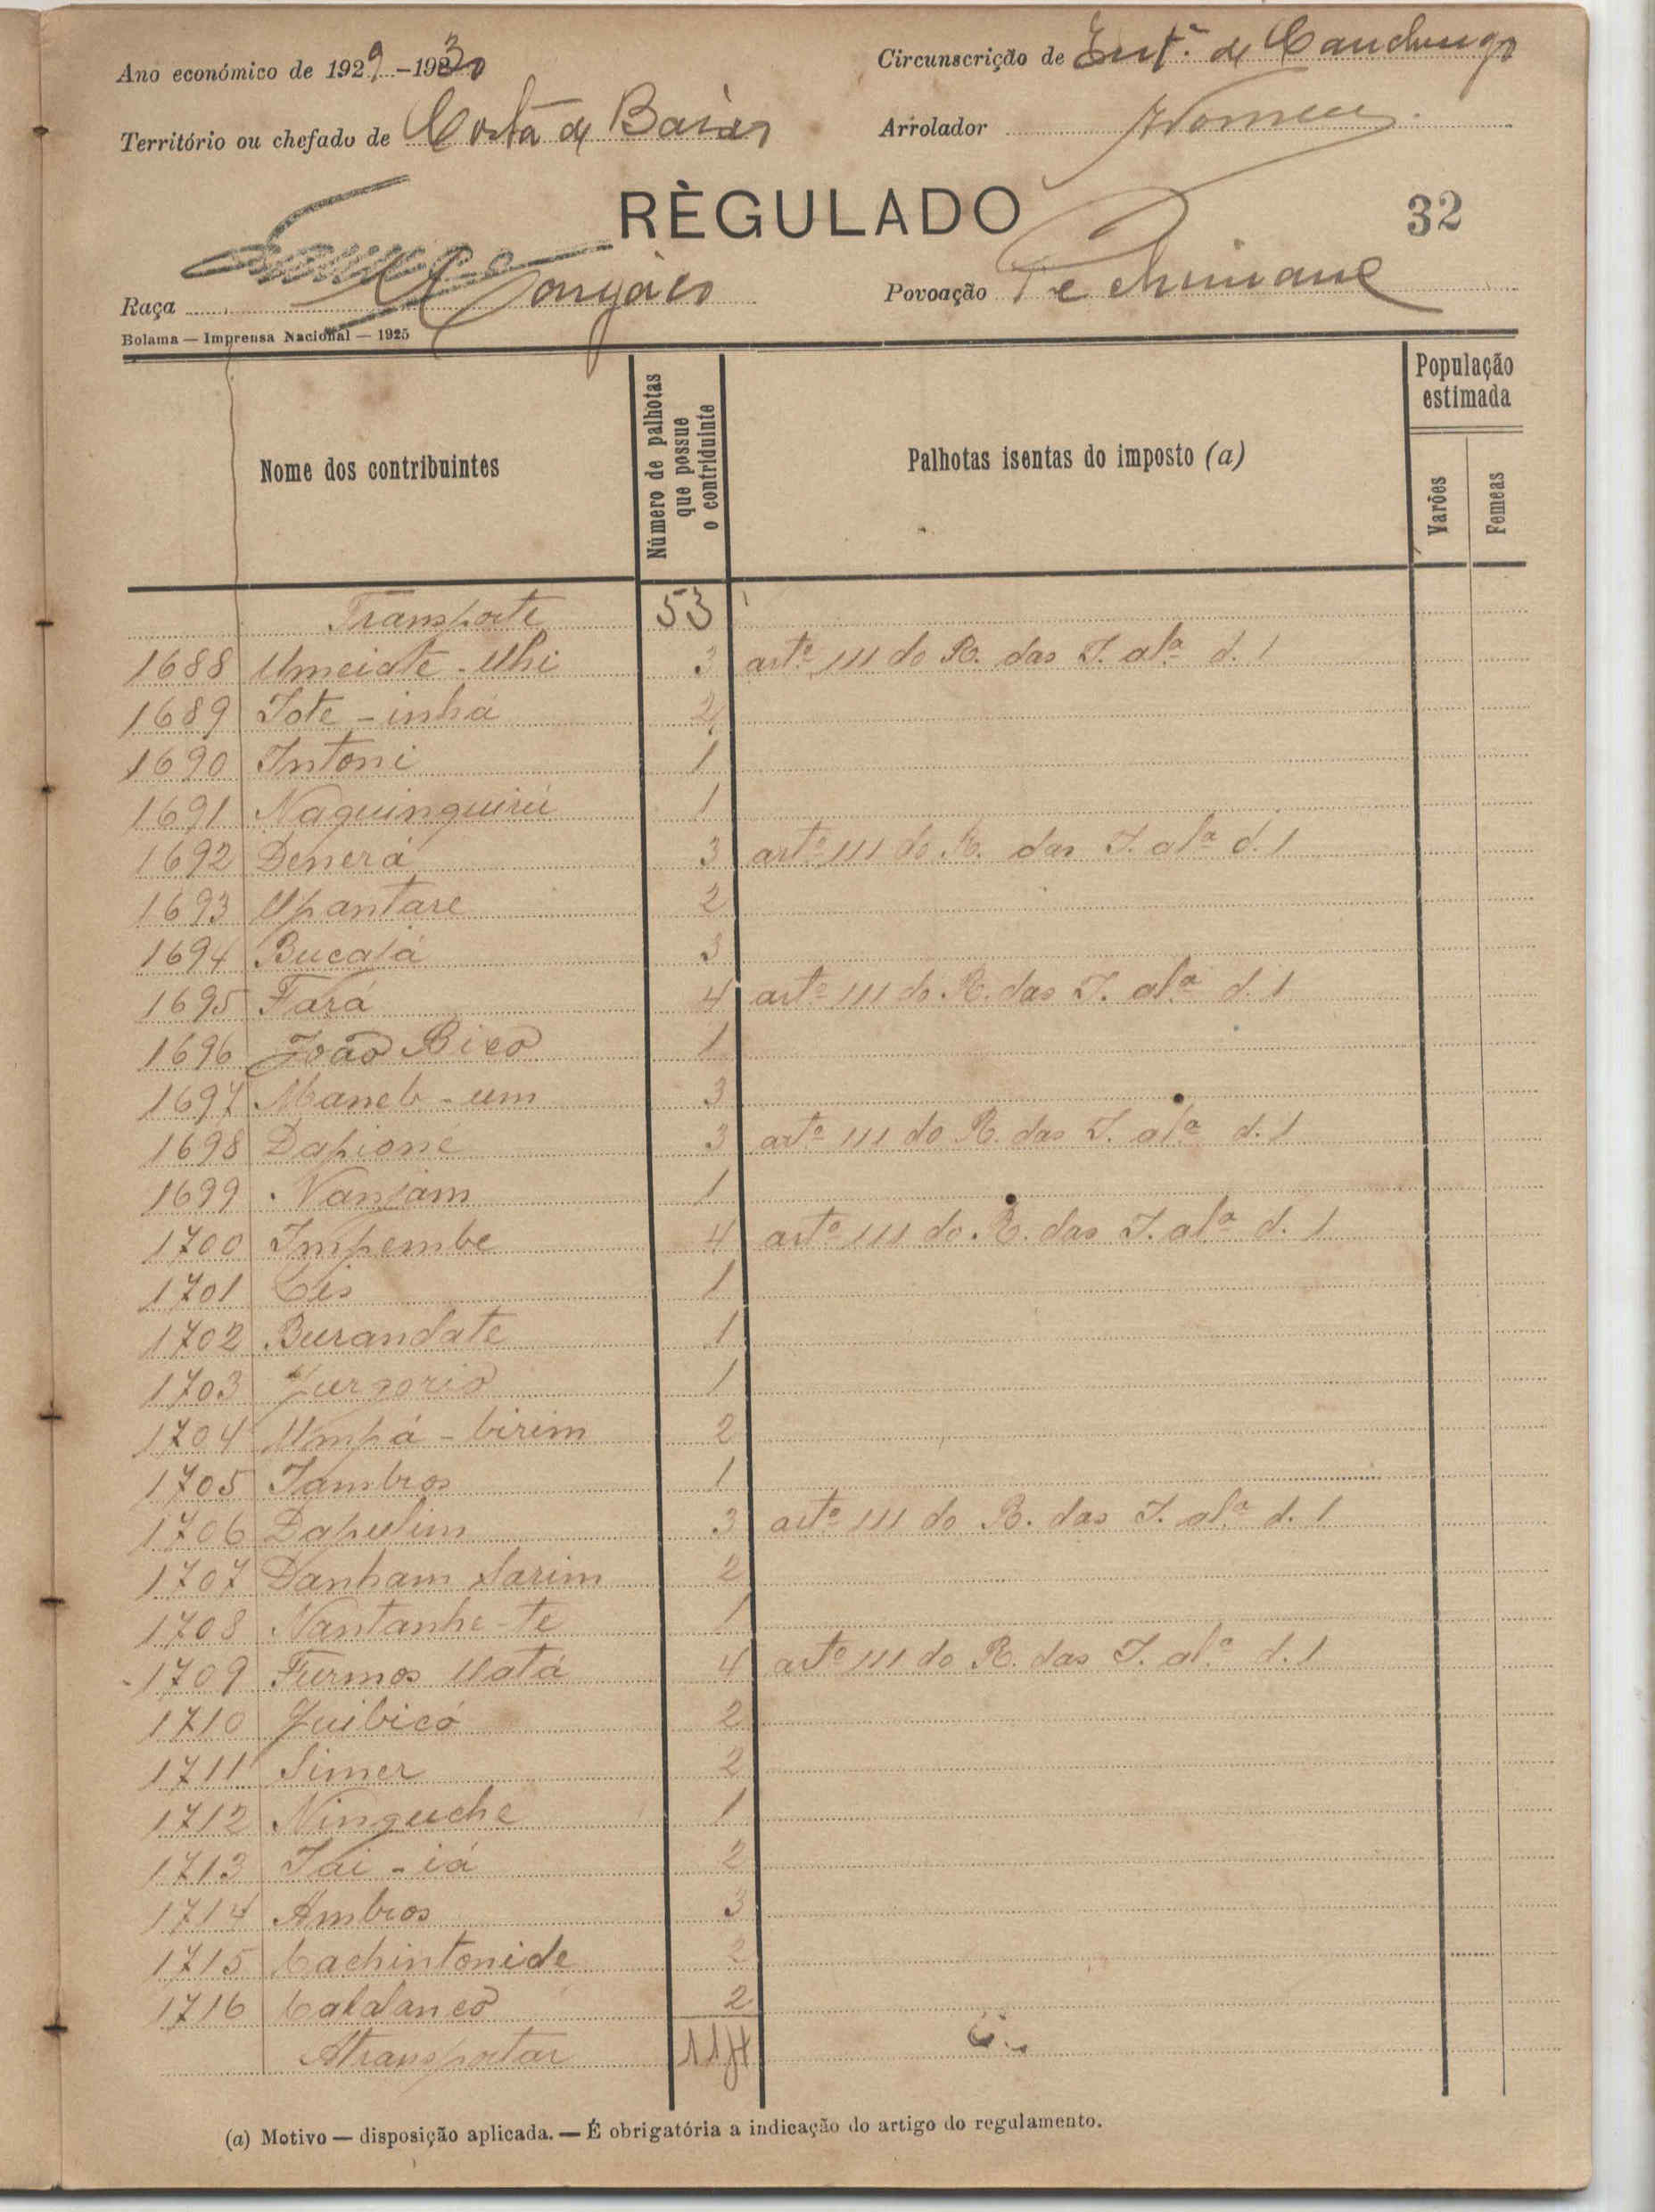 Ano económico de 1929-1930
Circunscrição de Int.ª de Canchungo
Território ou chefado de Costa de Baixo
Arrolador
RÈGULADO
32
Raça
Povoação Pechinane
Bolama — Imprensa Nacional — 1925
Nome dos contribuintes
Número de palhotas que possue o contriduinte
Palhotas isentas do imposto (a)
População estimada
Varões
Femeas
Transporte 53
1688 Umeiate - Uhi 3 artº 111 do R. das I. alª d. 1
1689 Tote - inhá 2
1690 Intoni 1
1691 Naquinquirú 1
1692 Denerá 3 artº 111 do R. das I. alª d. 1
1693 Upantare 2
1694 Bucajá 3
1695 Fará 4 artº 111 do R. das I. alª d. 1
1696 João Bico 1
1697 Maneb - um 3
1698 Dapioné 3 artº 111 do R. das I. alª d. 1
1699 Nanjam 1
1700 Impembe 4 artº 111 do R. das I. alª d. 1
1701 1
1702 Burandate 1
1703 Gurgorio 1
1704 Umpá - birim 2
1705 Jambros 1
1706 Dapulim 3 artº 111 do R. das I. alª d. 1
1707 Danham Sarim 2
1708 Nantanhe-te 1
1709 Furmos Uatá 4 artº 111 do R. das I. alª d. 1
1710 Quibicó 2
1711 Simer 2
1712 Ninguche 1
1713 Jai - iá 2
1714 Ambros 3
1715 Cachintonide 2
1716 Catalancó 2
A transportar 114
(a) Motivo — disposição aplicada. — É obrigatória a indicação do artigo do regulamento.